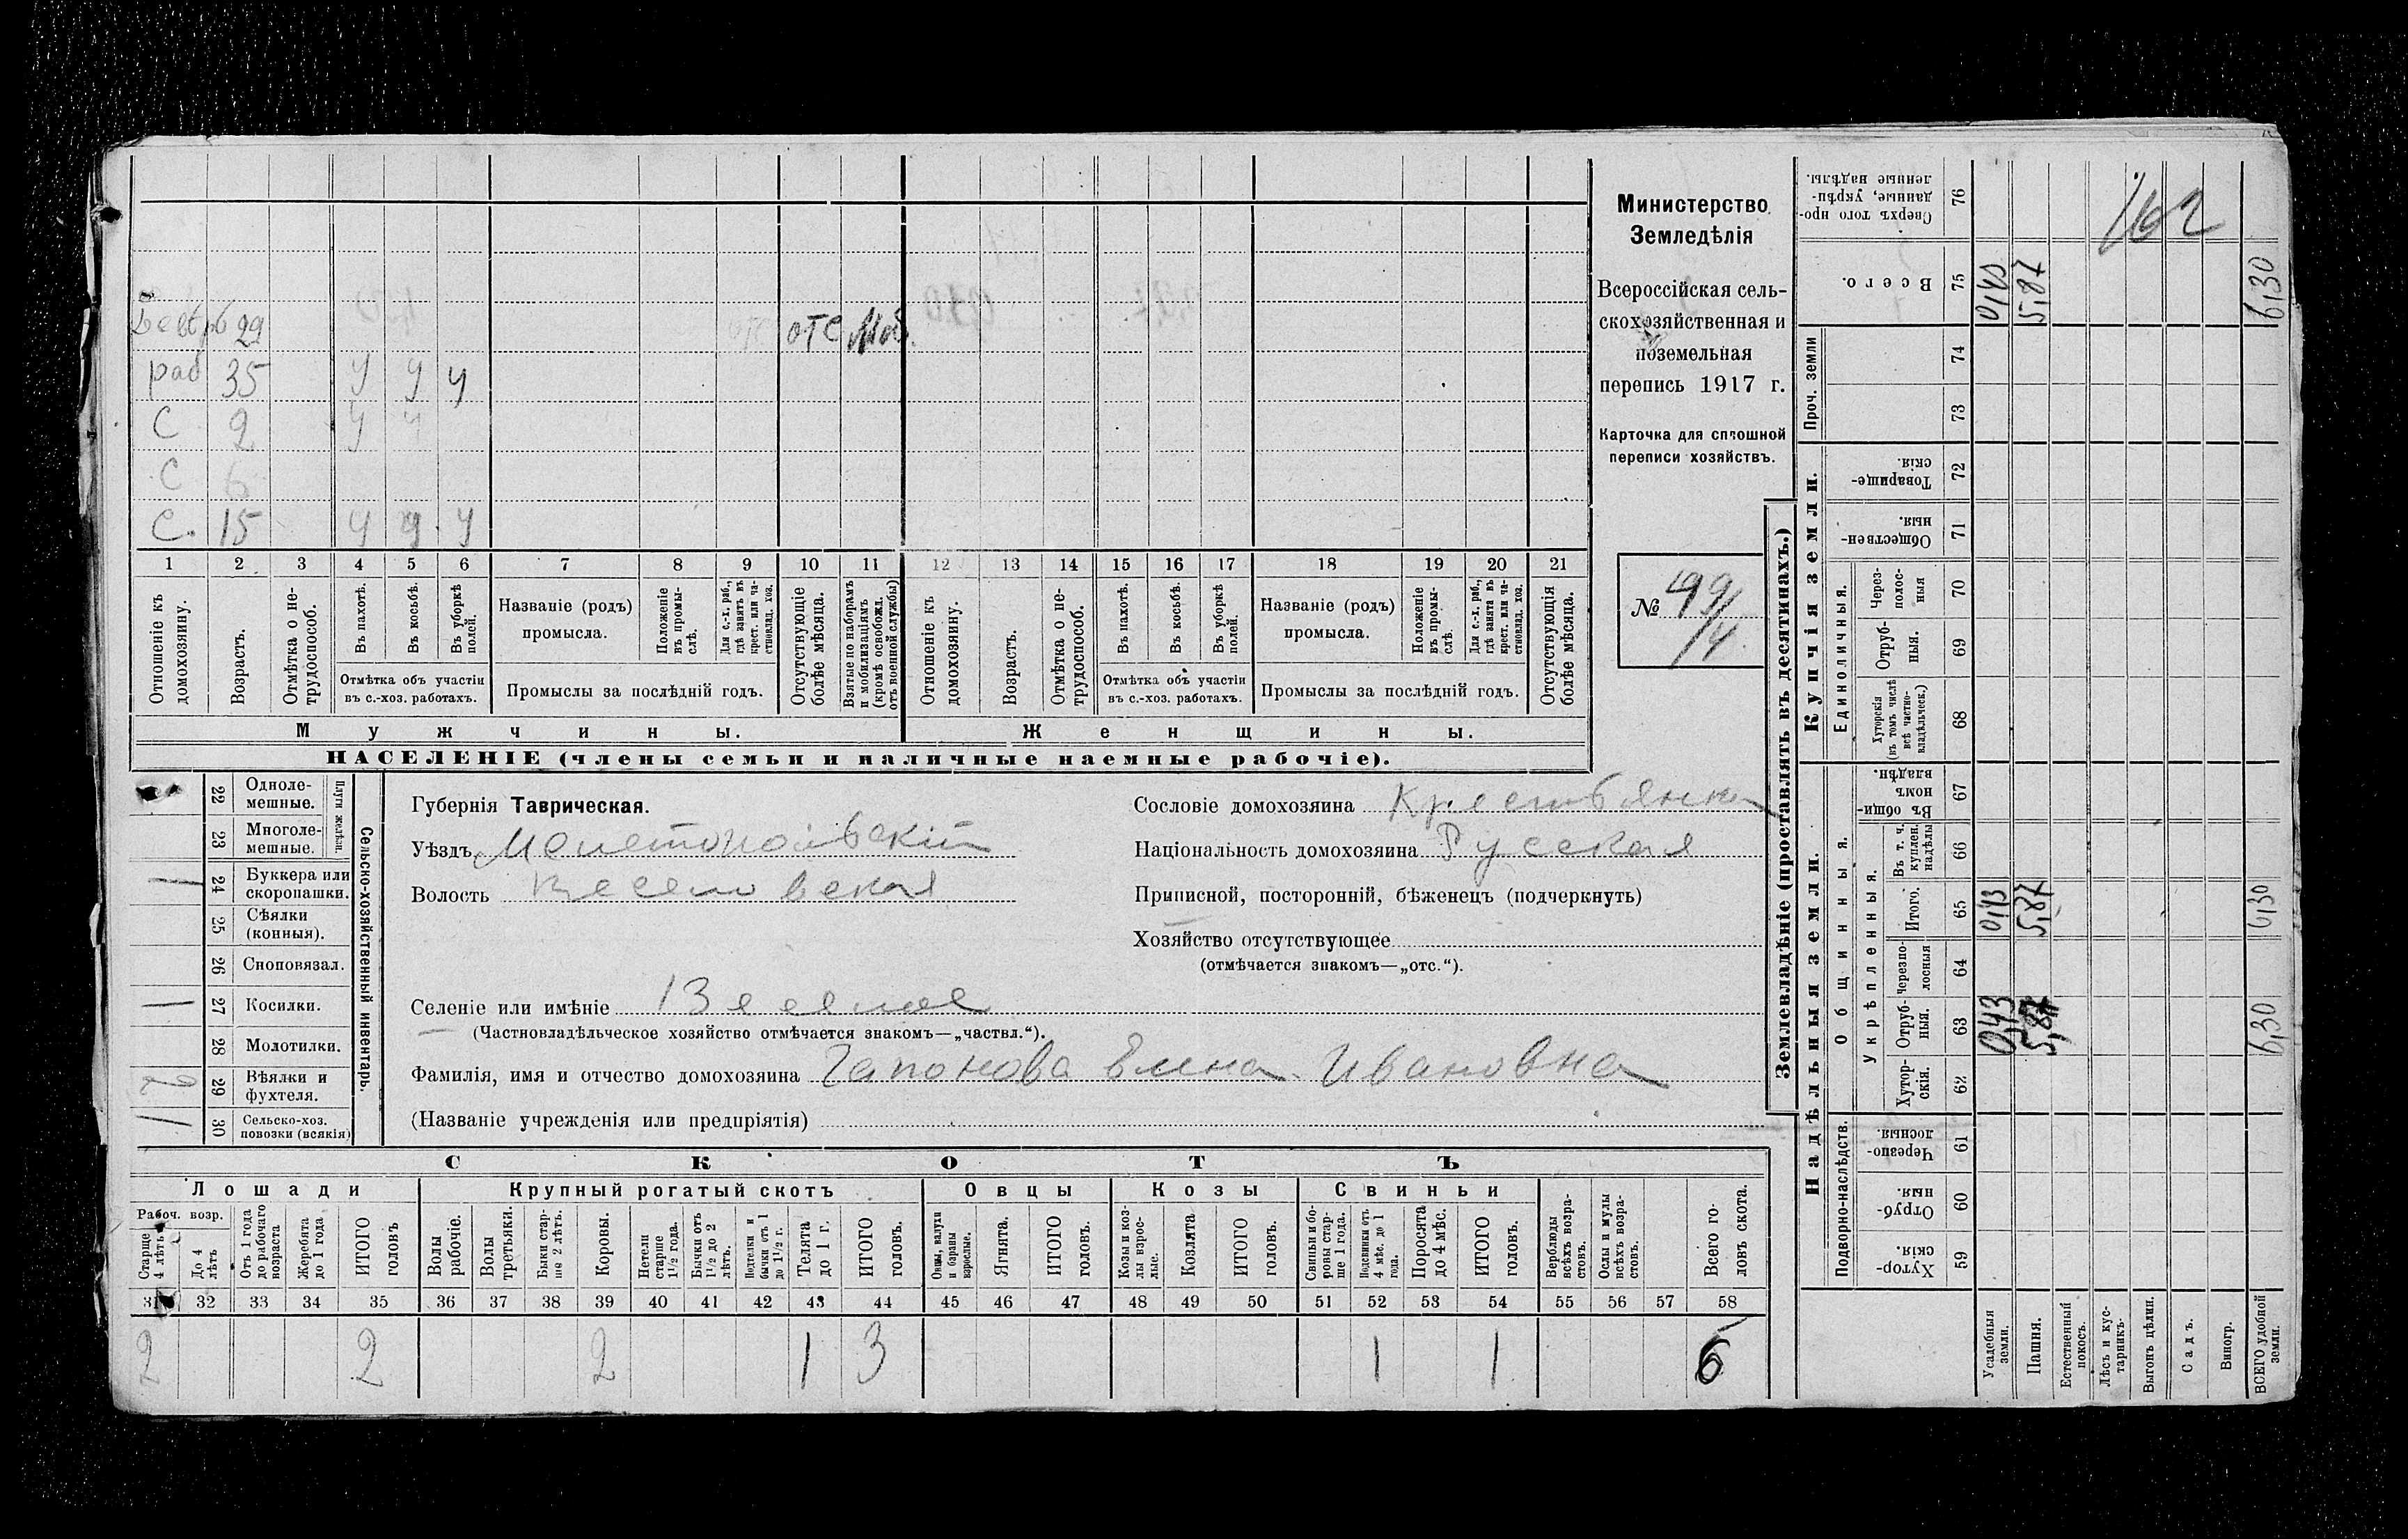 Министерство
Земледѣлія
Всероссійская сель-
скохозяйственная и
поземельная
перепись 1917 г.
Карточка для сплошной
переписи хозяйствъ.
№ 99/4
29 отс Моб.
раб 35 У У У
С 2 У У
С 6
С. 15 У У У
1 2 3 4 5 6 7 8 9 10 11 12 13 14 15 16 17 18 19 20 21
Отношеніе къ домохозяину.
Возрастъ.
Отмѣтка о не-трудоспособ.
Въ пахотѣ.
Въ косьбѣ.
Въ уборкѣ полей.
Отмѣтка объ участіи
въ с.-хоз. работахъ.
Названіе (родъ)
промысла.
Положеніе въ промы-слѣ.
Для с.-х. раб., гдѣ занятъ въ крест. или ча-стновлад. хоз.
Промыслы за послѣдній годъ.
Отсутствующіе болѣе мѣсяца.
Взятые по наборамъ и мобилизаціямъ (кромѣ освобожд. отъ военной службы)
Отношеніе къ домохозяину.
Возрастъ.
Отмѣтка о не-трудоспособ.
Въ пахотѣ.
Въ косьбѣ.
Въ уборкѣ полей.
Отмѣтка объ участіи
въ с.-хоз. работахъ.
Названіе (родъ)
промысла.
Положеніе въ промы-слѣ.
Для с.-х. раб., гдѣ занята въ крест. или ча-стновлад. хоз.
Промыслы за послѣдній годъ.
Отсутствующія болѣе мѣсяца.
Мужчины.
Женщины.
НАСЕЛЕНІЕ (члены семьи и наличные наемные рабочіе).
Сельско-хозяйственный инвентарь.
Плуги желѣзн.
22 Одноле-мешные.
23 Многоле-мешные.
1 24 Буккера или скоропашки.
25 Сѣялки (конныя).
26 Сноповязал.
1 27 Косилки.
28 Молотилки.
29 Вѣялки и фухтеля.
1 30 Сельско-хоз. повозки (всякія)
Губернія Таврическая.
Уѣздъ Мелитопольскій
Волость Веселовская
Селеніе или имѣніе
(Частновладѣльческое хозяйство отмѣчается знакомъ—„частвл.“).
Фамилія, имя и отчество домохозяина Гапонова Елена Ивановна
(Названіе учрежденія или предпріятія)
Сословіе домохозяина Крестьянка
Національность домохозяина Русская
Приписной, посторонній, бѣженецъ (подчеркнуть)
Хозяйство отсутствующее
(отмѣчается знакомъ—„отс.“).
СКОТЪ
Лошади
Крупный рогатый скотъ
Овцы
Козы
Свиньи
Рабоч. возр.
Старше 4 лѣтъ
До 4 лѣтъ
Отъ 1 года до рабочаго возраста
Жеребята до 1 года
ИТОГО головъ
Волы рабочіе.
Волы третьяки.
Быки стар-ше 2 лѣтъ.
Коровы.
Нетели старше 1½ года.
Бычки отъ 1½ до 2 лѣтъ.
Подтелки и бычки отъ 1 до 1½ г.
Телята до 1 г.
ИТОГО головъ.
Овцы, валухи и бараны взрослые.
Ягнята.
ИТОГО головъ.
Козы и коз-лы взрос-лые.
Козлята
ИТОГО головъ.
Свиньи и бо-ровы стар-ше 1 года.
Подсвинки отъ 4 мѣс. до 1 года.
Поросята до 4 мѣс.
ИТОГО головъ.
Верблюды всѣхъ возра-стовъ.
Ослы и мулы всѣхъ возра-стовъ.
Всего го-ловъ скота.
31 32 33 34 35 36 37 38 39 40 41 42 43 44 45 46 47 48 49 50 51 52 53 54 55 56 57 58
2 2 2 1 3 1 1 6
Землевладѣніе (проставлять въ десятинахъ.)
Надѣльныя земли.
Купчія земли.
Проч. земли
Подворно-наслѣдств.
Общинныя.
Укрѣпленныя.
Единоличныя.
Хутор-скія. 59
Отруб-ныя. 60
Черезпо-лосныя. 61
Хутор-скія. 62
Отруб-ныя. 63 0,43 5,87 6,30
Черезпо-лосныя 64
Итого. 65 0,43 5,87 6,30
Въ т. ч. куплен. надѣлы 66
Въ общи-номъ владѣн. 67
Хуторскія (въ томъ числѣ всѣ частно-владѣльческ.) 68
Отруб-ныя. 69
Через-полос-ныя 70
Обществен-ныя. 71
Товарище-скія. 72
73
74
Всего. 75 0,43 5,87 6,30
Сверхъ того про-данные, укрѣп-ленные надѣлы. 76
162
Усадебныя земли.
Пашня.
Естественный покосъ.
Лѣсъ и кус-тарникъ.
Выгонъ цѣлин.
Садъ.
Виногр.
ВСЕГО удобной земли.